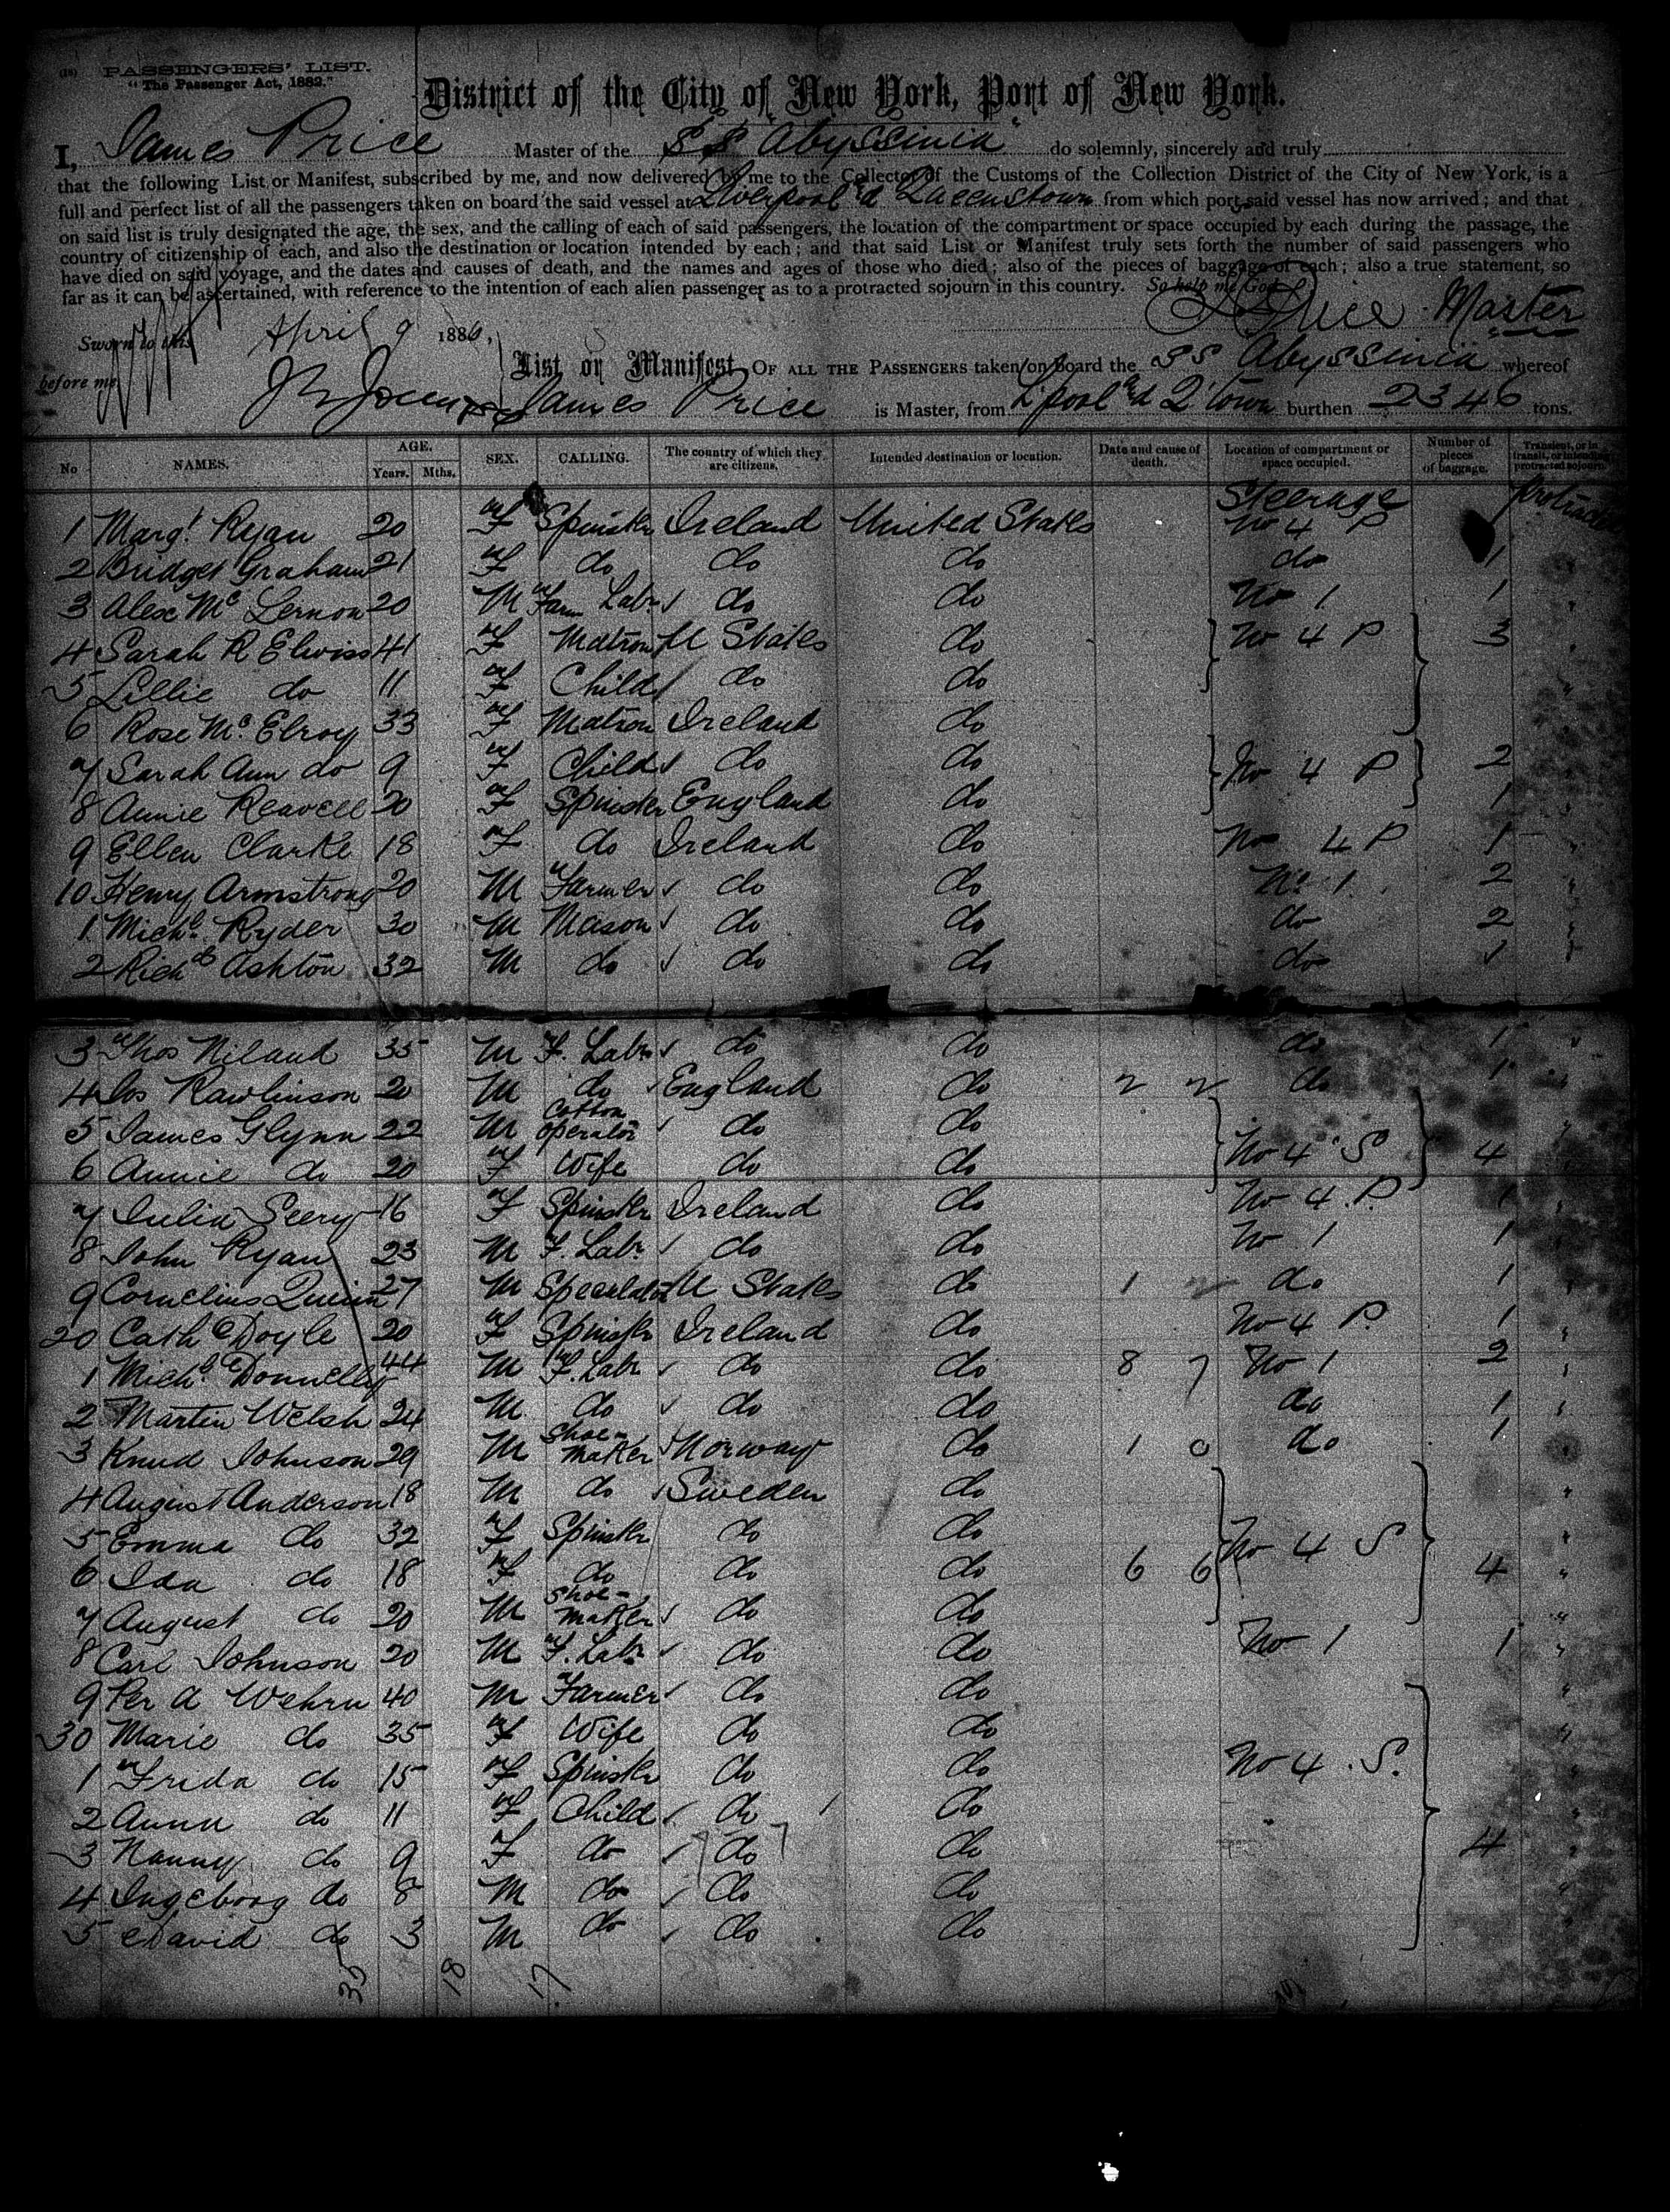 (18) PASSENGERS' LIST.
"The Passenger Act, 1882."
District of the City of New York, Port of New York.
I, James Price Master of the SS "Abyssinia" do solemnly, sincerely and truly
that the following List or Manifest, subscribed by me, and now delivered by me to the Collector of the Customs of the Collection District of the City of New York, is a
full and perfect list of all the passengers taken on board the said vessel at Liverpool a'd Queenstown from which port said vessel has now arrived; and that
on said list is truly designated the age, the sex, and the calling of each of said passengers, the location of the compartment or space occupied by each during the passage, the
country of citizenship of each, and also the destination or location intended by each; and that said List or Manifest truly sets forth the number of said passengers who
have died on said voyage, and the dates and causes of death, and the names and ages of those who died; also of the pieces of baggage of each; also a true statement, so
far as it can be ascertained, with reference to the intention of each alien passenger as to a protracted sojourn in this country. So help me God
Price Master
Sworn to this April 9 1886,
before me
List or Manifest OF ALL THE PASSENGERS taken on board the SS Abyssinia whereof
James Price is Master, from L'pool a'd Q'town burthen 2346 tons.
No NAMES. AGE. Years. Mths. SEX. CALLING. The country of which they are citizens. Intended destination or location. Date and cause of death. Location of compartment or space occupied. Number of pieces of baggage. Transient, or in transit, or intending protracted sojourn.
Steerage
1 Margt Ryan 20 F Spinster Ireland United States No 4 P
2 Bridget Graham 21 F do do do do 1
3 Alex Mc Lernon 20 M Farm Labr do do No 1 1
4 Sarah R Elwiss 41 F Matron U States do No 4 P 3
5 Lillie do 11 F Child do do
6 Rose Mc Elroy 33 F Matron Ireland do
7 Sarah Ann do 9 F Child do do No 4 P 2
8 Annie Reavell 20 F Spinster England do 1
9 Ellen Clarke 18 F do Ireland do No 4 P 1
10 Henry Armstrong 20 M Farmer do do No 1 2
1 Michl Ryder 30 M Mason do do do 2
2 Richd Ashton 32 M do do do do 1
3 Thos Niland 35 M F. Labr do do do 1
4 Jos Rawlinson 20 M do England do do 1
5 James Glynn 22 M Cotton operator do do
6 Annie do 20 F Wife do do No 4 S 4
7 Julia Seery 16 F Spinster Ireland do No 4 P. 1
8 John Ryan 23 M F. Labr do do No 1 1
9 Cornelius Quinn 27 M Speculator U States do 1 do 1
20 Cath Doyle 20 F Spinster Ireland do No 4 P. 1
1 Michl Donnelly 44 M F. Labr do do 8 7 No 1 2
2 Martin Welsh 24 M do do do do 1
3 Knud Johnson 29 M Shoe-maker Norway do 1 0 do 1
4 August Anderson 18 M do Sweden do
5 Emma do 32 F Spinster do do No 4 S
6 Ida do 18 F do do do 6 6 4
7 August do 20 M Shoe-maker do do
8 Carl Johnson 20 M F. Labr do do No 1 1
9 Per A Wehrn 40 M Farmer do do
30 Marie do 35 F Wife do do
1 Frida do 15 F Spinster do do No 4 S.
2 Anna do 11 F Child do do
3 Nanny do 9 F do do do 4
4 Ingeborg do 8 M do do do
5 David do 3 M do do do
35 18 17